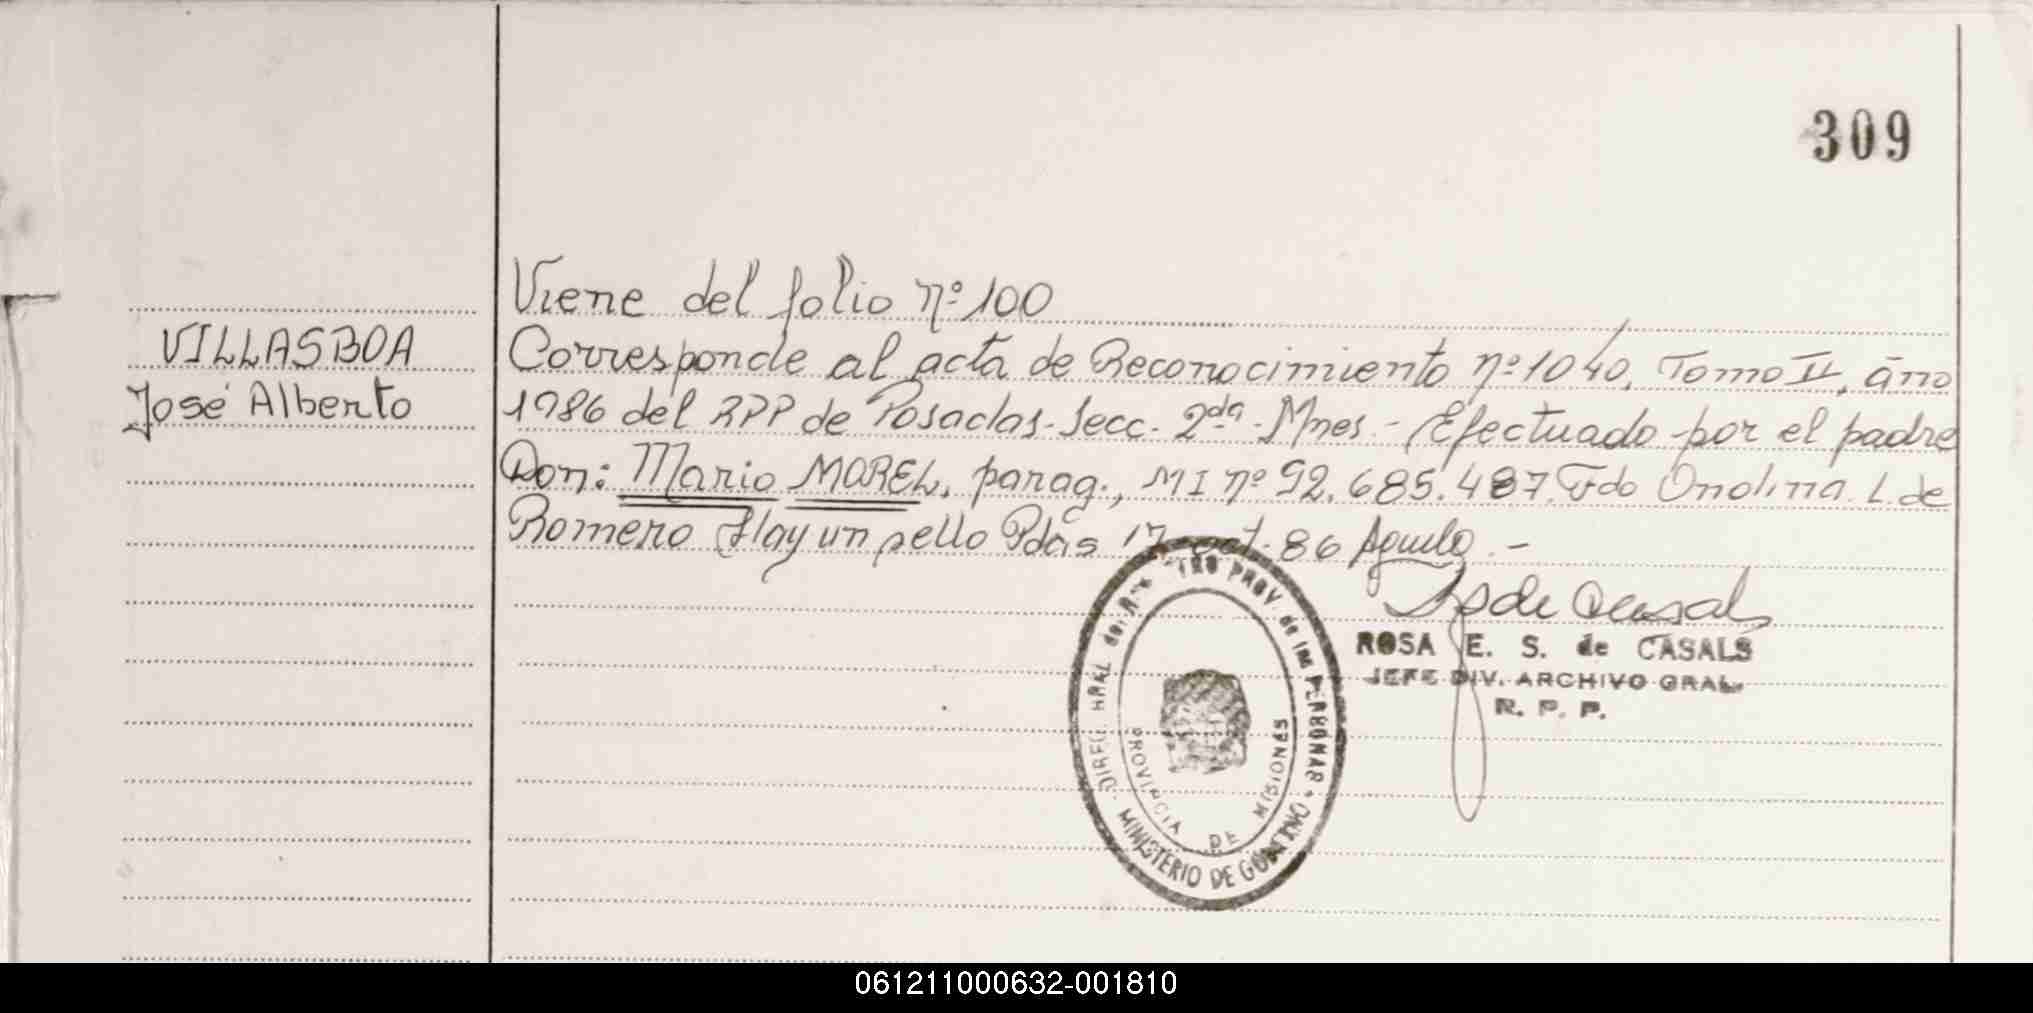 309
Viene del folio nº 100
VILLASBOA
José Alberto
Corresponde al acta de Reconocimiento nº 1040, Tomo II, año
1986 del RPP de Posadas. Secc. 2da. Mnes - Efectuado por el padre
Don: Mario MOREL, parag., MI nº 92.685.487. Fdo Ondina L. de
Romero Hay un sello Pdas 17 oct. 86
ROSA E. S. de CASALS
JEFE DIV. ARCHIVO GRAL.
R. P. P.
PROV. de las PERSONAS
MINISTERIO DE GOBIERNO
PROVINCIA DE MISIONES
061211000632-001810